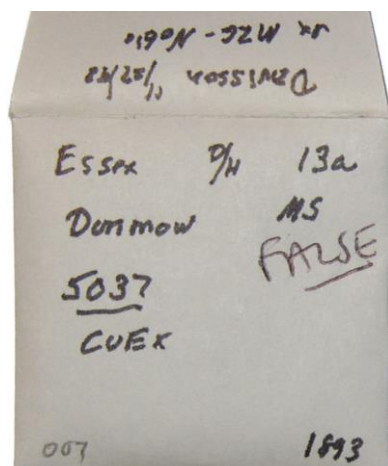 Davisson
Noble
Essex D/H 13a
Dunmow MS
FALSE
5037
CUEX
007 1893